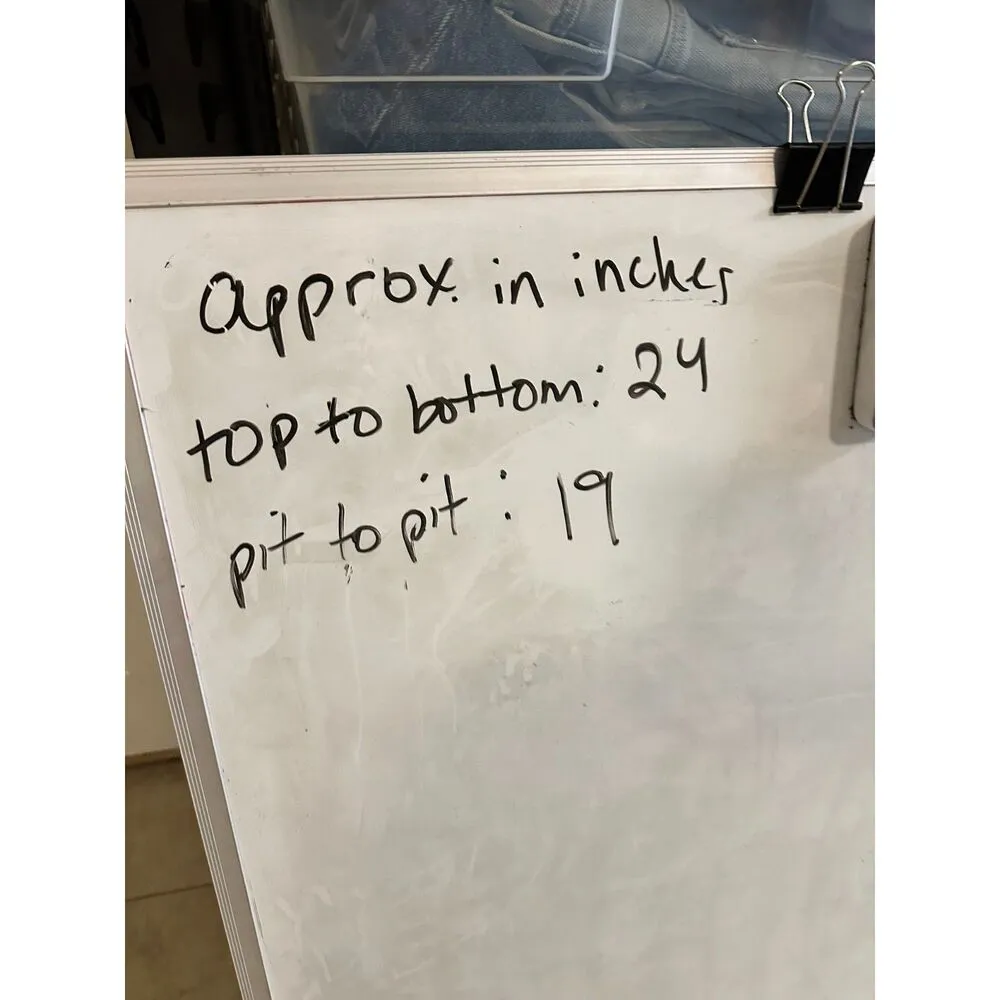 approx. in inches
top to bottom: 24
pit to pit: 19